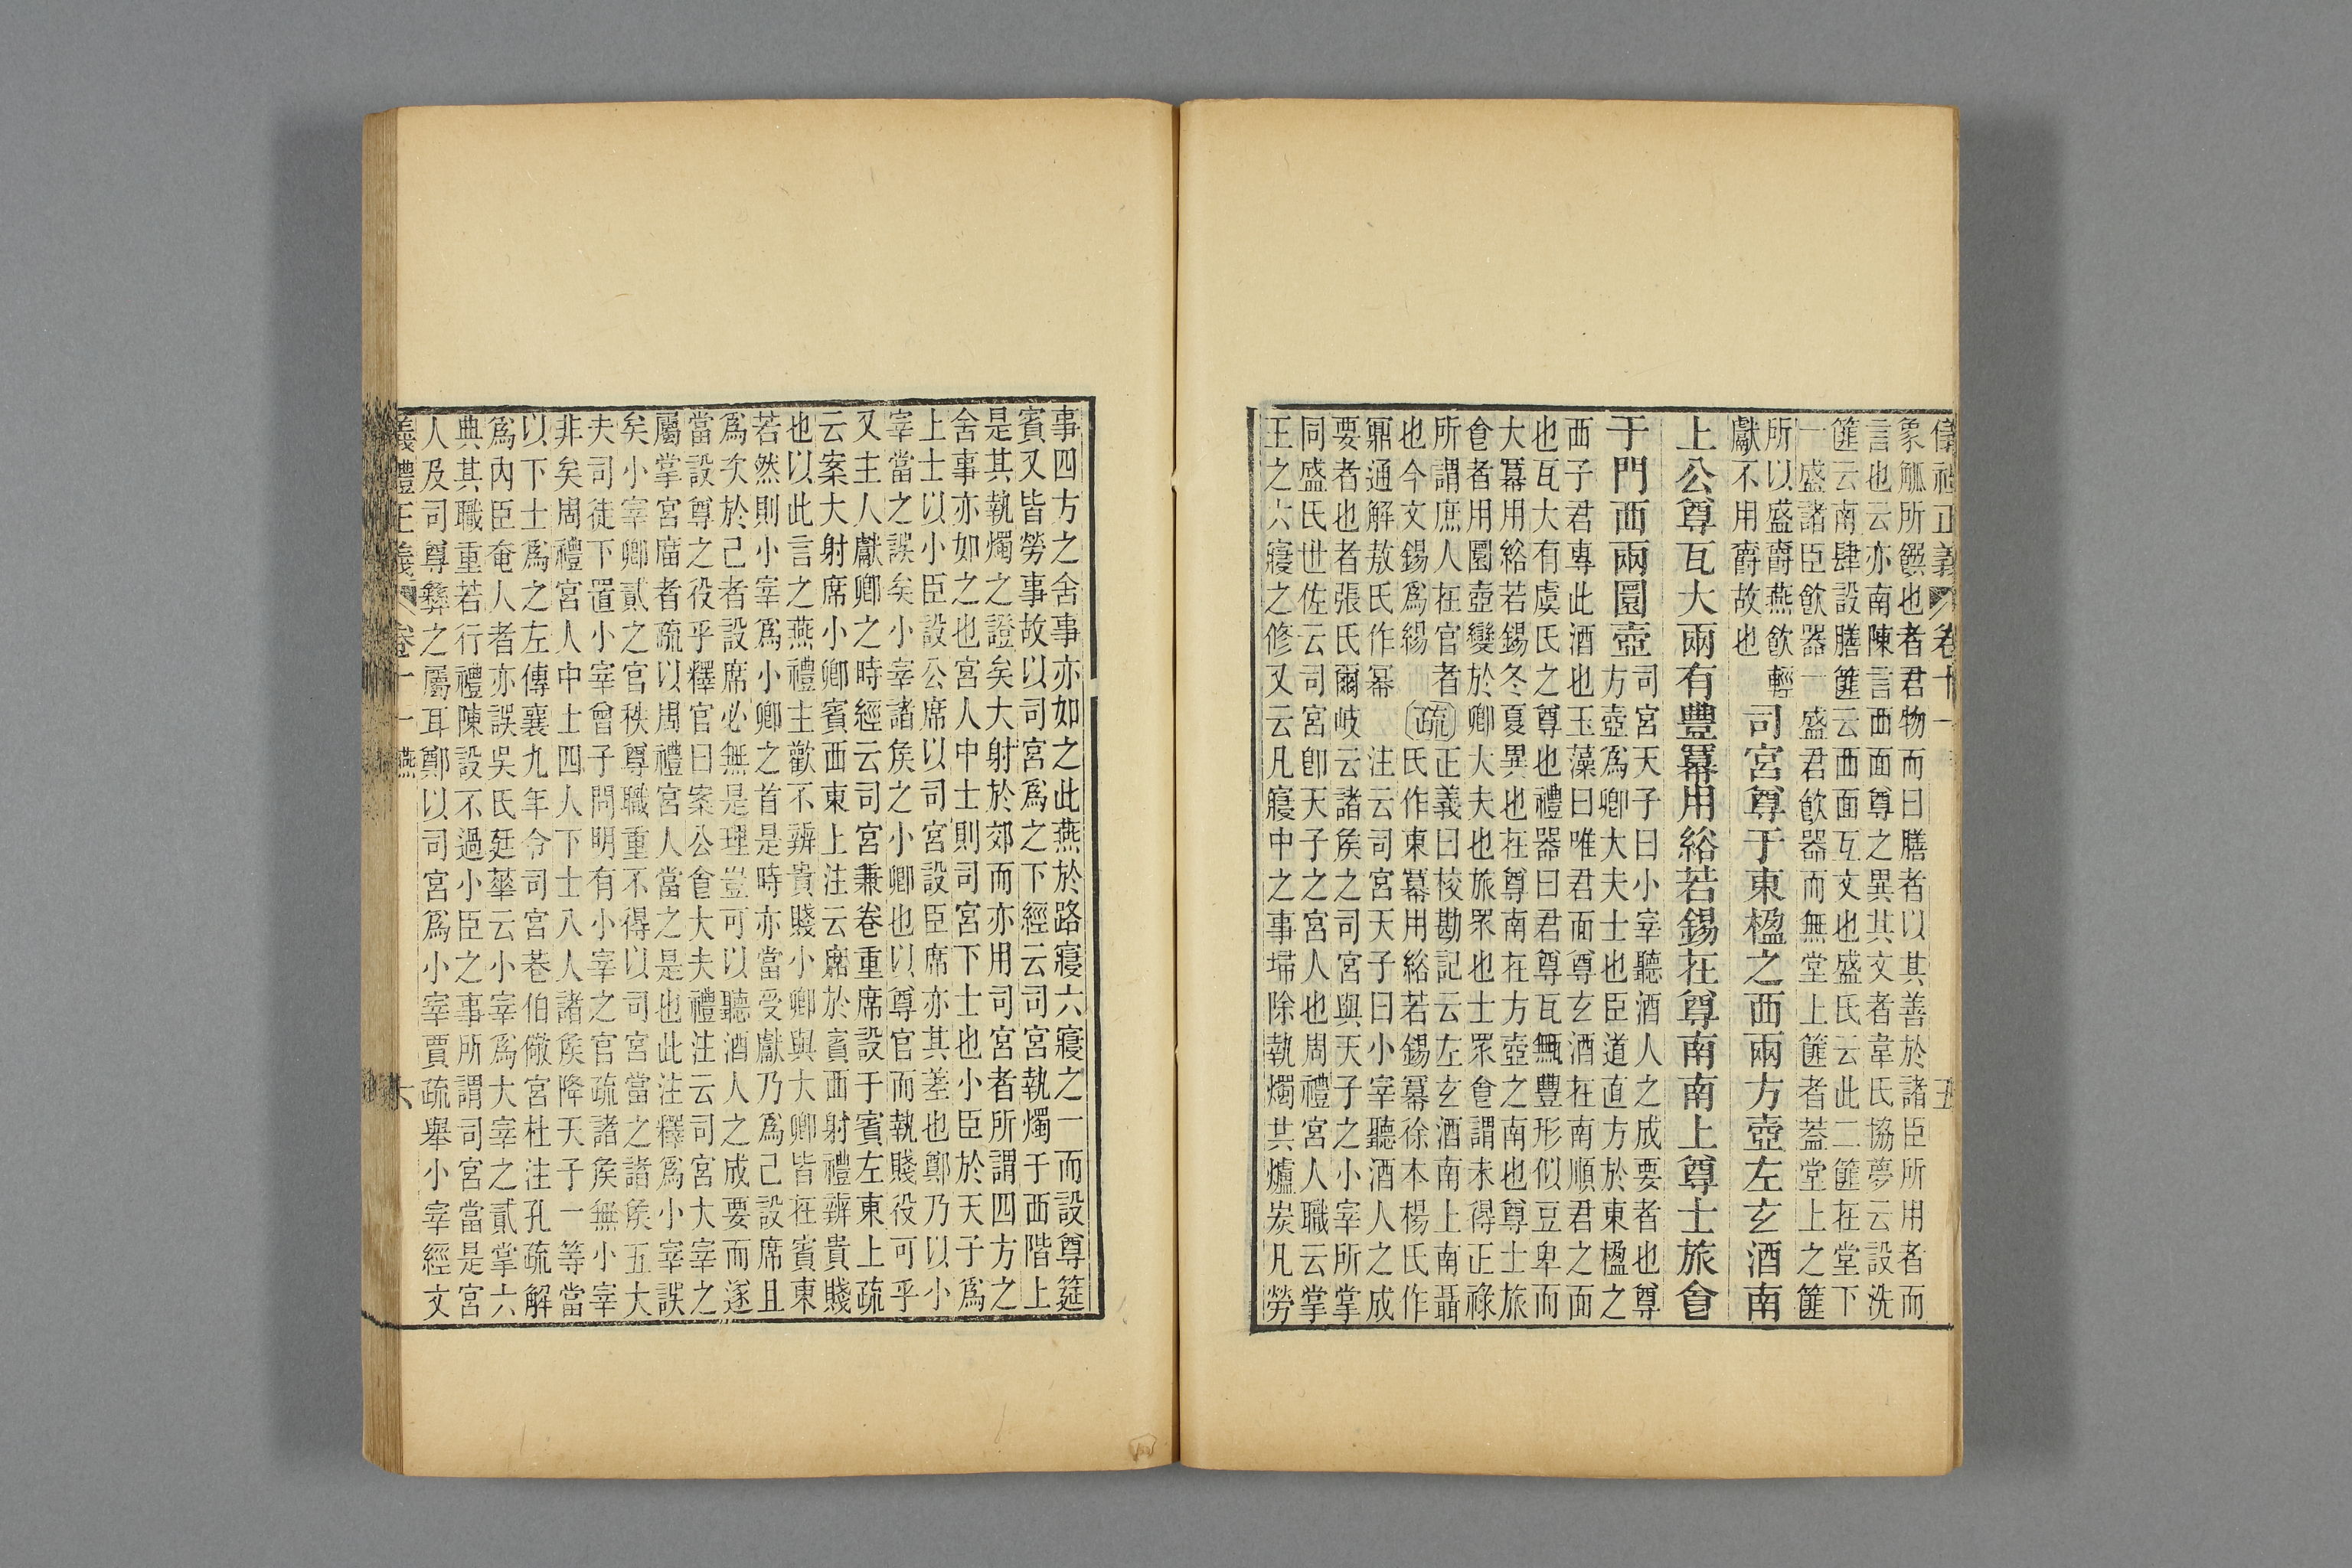 儀禮正義 卷十一 五
象觚所饌也者君物而曰膳者以其善於諸臣所用者而
言也云亦南陳言西面尊之異其文者韋氏協夢云設洗
篚云南肆設膳篚云西面互文也盛氏云此二篚在堂下
一盛諸臣飲器一盛君飲器而無堂上篚者葢堂上之篚
所以盛爵燕飲輕
獻不用爵故也
司宮尊于東楹之西兩方壺左玄酒南
上公尊瓦大兩有豐冪用綌若錫在尊南南上尊士旅食
于門西兩圜壺
司宮天子曰小宰聽酒人之成要者也尊
方壺爲卿大夫士也臣道直方於東楹之
西子君專此酒也玉藻曰唯君面尊玄酒在南順君之面
也瓦大有虞氏之尊也禮器曰君尊瓦甒豐形似豆卑而
大冪用綌若錫冬夏異也在尊南在方壺之南也尊士旅
食者用圜壺變於卿大夫也旅眾也士眾食謂未得正祿
所謂庶人在官者
也今文錫爲緆
疏 正義曰校勘記云左玄酒南上南聶
氏作東冪用綌若錫冪徐本楊氏作
鼏通解敖氏作冪
注云司宮天子曰小宰聽酒人之成
要者也者張氏爾岐云諸矦之司宮與天子之小宰所掌
同盛氏世佐云司宮卽天子之宮人也周禮宮人職云掌
王之六寢之修又云凡寢中之事埽除執燭共爐炭凡勞
事四方之舍事亦如之此燕於路寢六寢之一而設尊筵
賓又皆勞事故以司宮爲之下經云司宮執燭于西階上
是其執燭之證矣大射於郊而亦用司宮者所謂四方之
舍事亦如之也宮人中士則司宮下士也小臣於天子爲
上士以小臣設公席以司宮設臣席亦其差也鄭乃以小
宰當之誤矣小宰諸矦之小卿也以尊官而執賤役可乎
又主人獻卿之時經云司宮兼卷重席設于賓左東上疏
云案大射席小卿賓西東上注云席於賓西射禮辨貴賤
也以此言之燕禮主歡不辨貴賤小卿與大卿皆在賓東
若然則小宰爲小卿之首是時亦當受獻乃爲己設席且
爲次於己者設席必無是理豈可以聽酒人之成要而遂
當設尊之役乎釋官曰案公食大夫禮注云司宮大宰之
屬掌宮廟者疏以周禮宮人當之是也此注釋爲小宰誤
矣小宰卿貳之官秩尊職重不得以司宮當之諸矦五大
夫司徒下置小宰曾子問明有小宰之官疏諸矦無小宰
非矣周禮宮人中士四人下士八人諸矦降天子一等當
以下士爲之左傳襄九年令司宮巷伯儆宮杜注孔疏解
爲內臣奄人者亦誤吳氏廷華云小宰爲大宰之貳掌六
典其職重若行禮陳設不過小臣之事所謂司宮當是宮
人及司尊彝之屬耳鄭以司宮爲小宰賈疏舉小宰經文
義禮正義 卷十一 燕 六